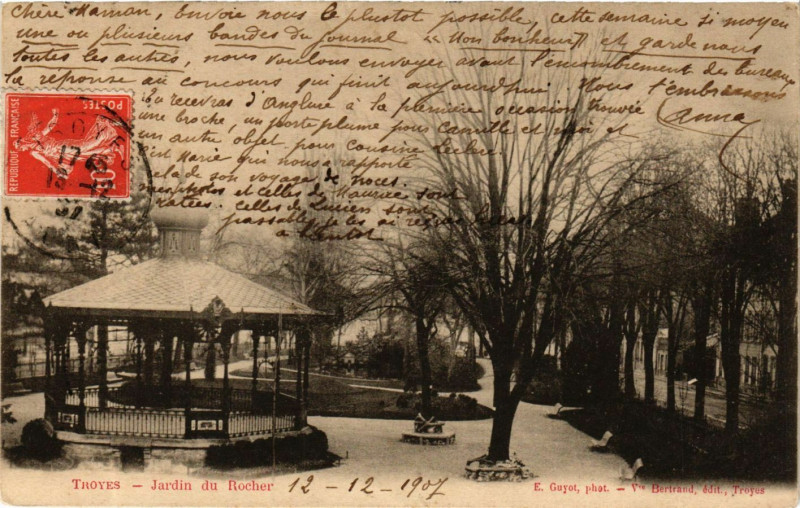 Chère Maman, Envoie nous le plustot possible, cette semaine si moyen
une ou plusieurs bandes du journal "Mon bonheur" et garde nous
toutes les autres, nous voulons envoyer avant l'encombrement des bureaux
la réponse au concours qui finit aujourd'hui. Nous t'embrassons
Tu recevras d'Anglure à la première occasion trouvée
une broche, un porte plume pour Camille et moi et
un autre objet pour cousine
C'est Marie qui nous a rapporté
cela de son voyage de noces.
mes photos et celles de Maurice sont
ratées. Celles de Lucien sont
passables je les ai
a bientot
REPUBLIQUE FRANÇAISE
POSTES
10
TROYES - Jardin du Rocher
12-12-1907
E. Guyot, phot. - Vve Bertrand, édit., Troyes